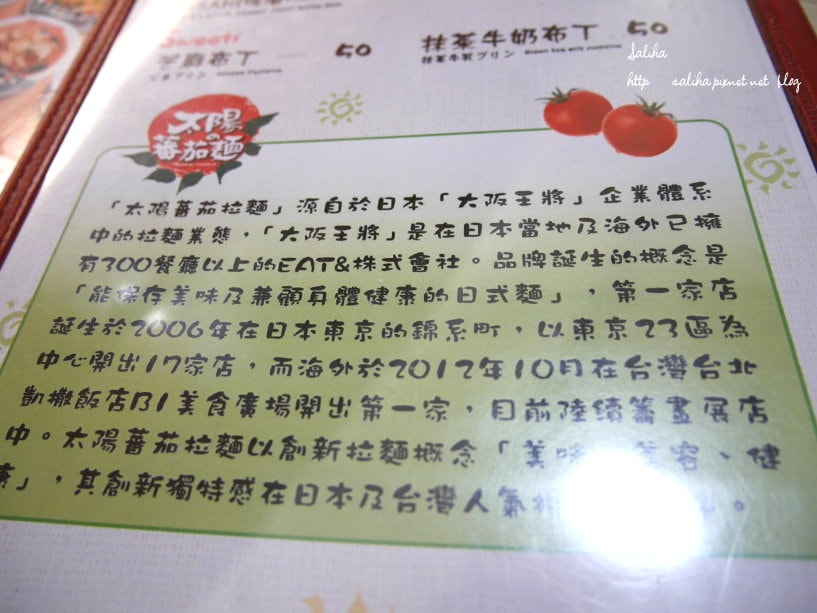 Sweets
芝麻布丁 50 抹茶牛奶布丁 50
抹茶牛乳プリン Green tea milk pudding
Saliha
http saliha.pixnet.net blog
太陽の
蕃茄麵
「太陽蕃茄拉麵」源自於日本「大阪王將」企業體系
中的拉麵業態,「大阪王將」是在日本當地及海外已擁
有300餐廳以上的EAT&株式會社。品牌誕生的概念是
「能保存美味及兼顧身體健康的日式麵」,第一家店
誕生於2006年在日本東京的錦糸町,以東京23區為
中心開出17家店,而海外於2012年10月在台灣台北
凱撒飯店B1美食廣場開出第一家,目前陸續籌畫展店
中。太陽蕃茄拉麵以創新拉麵概念「美味、美容、健
康」,其創新獨特感在日本及台灣人氣 。